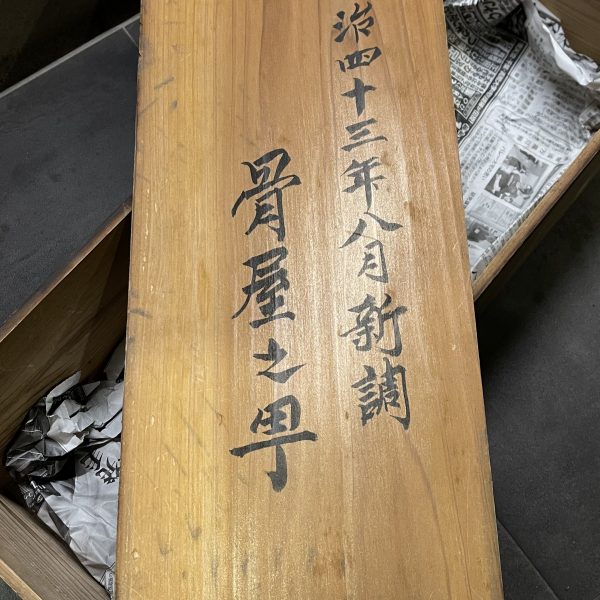 治四十三年八月新調
骨屋之甲